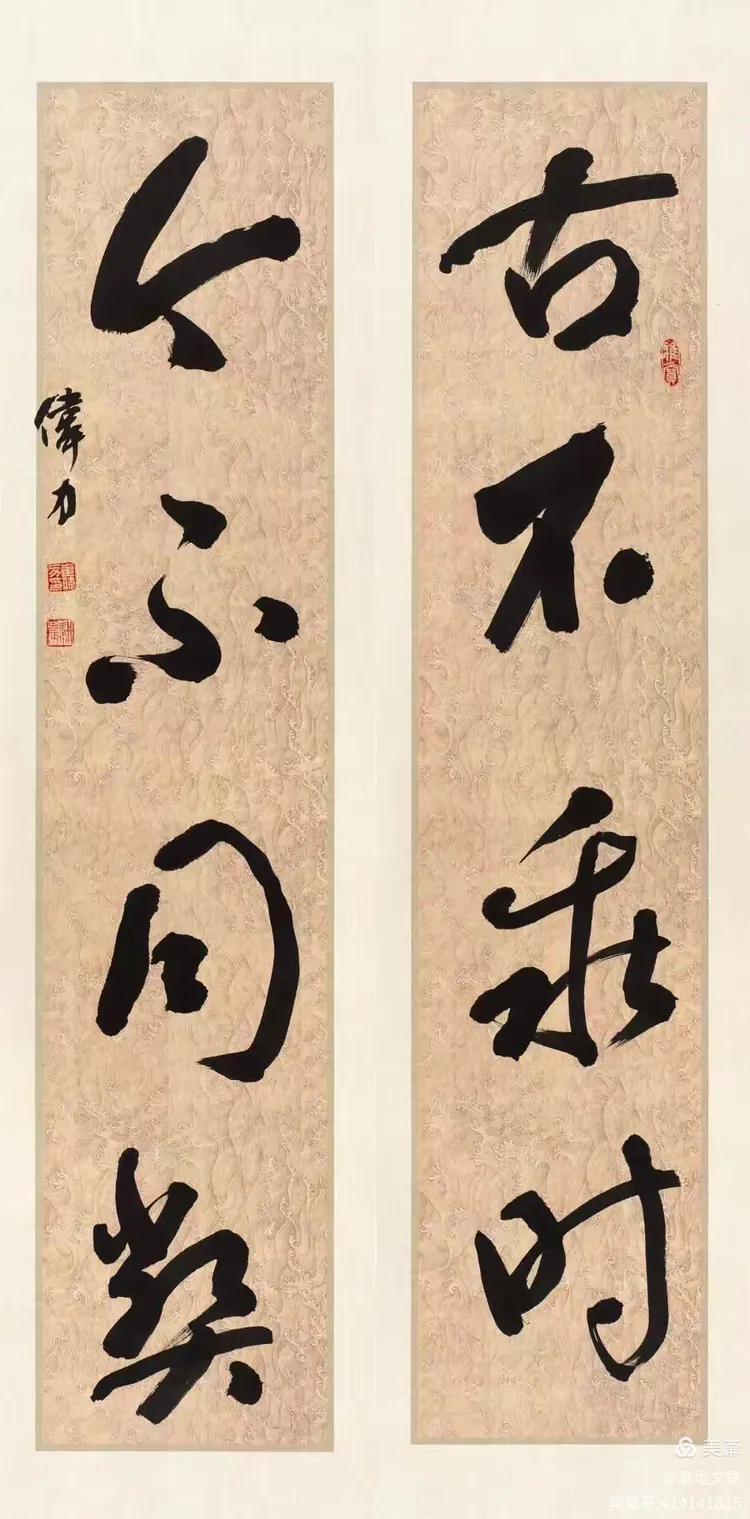 古不乖时
雅賞
今不同弊
偉力
美篇
@襄垣文联
美篇号:414141815